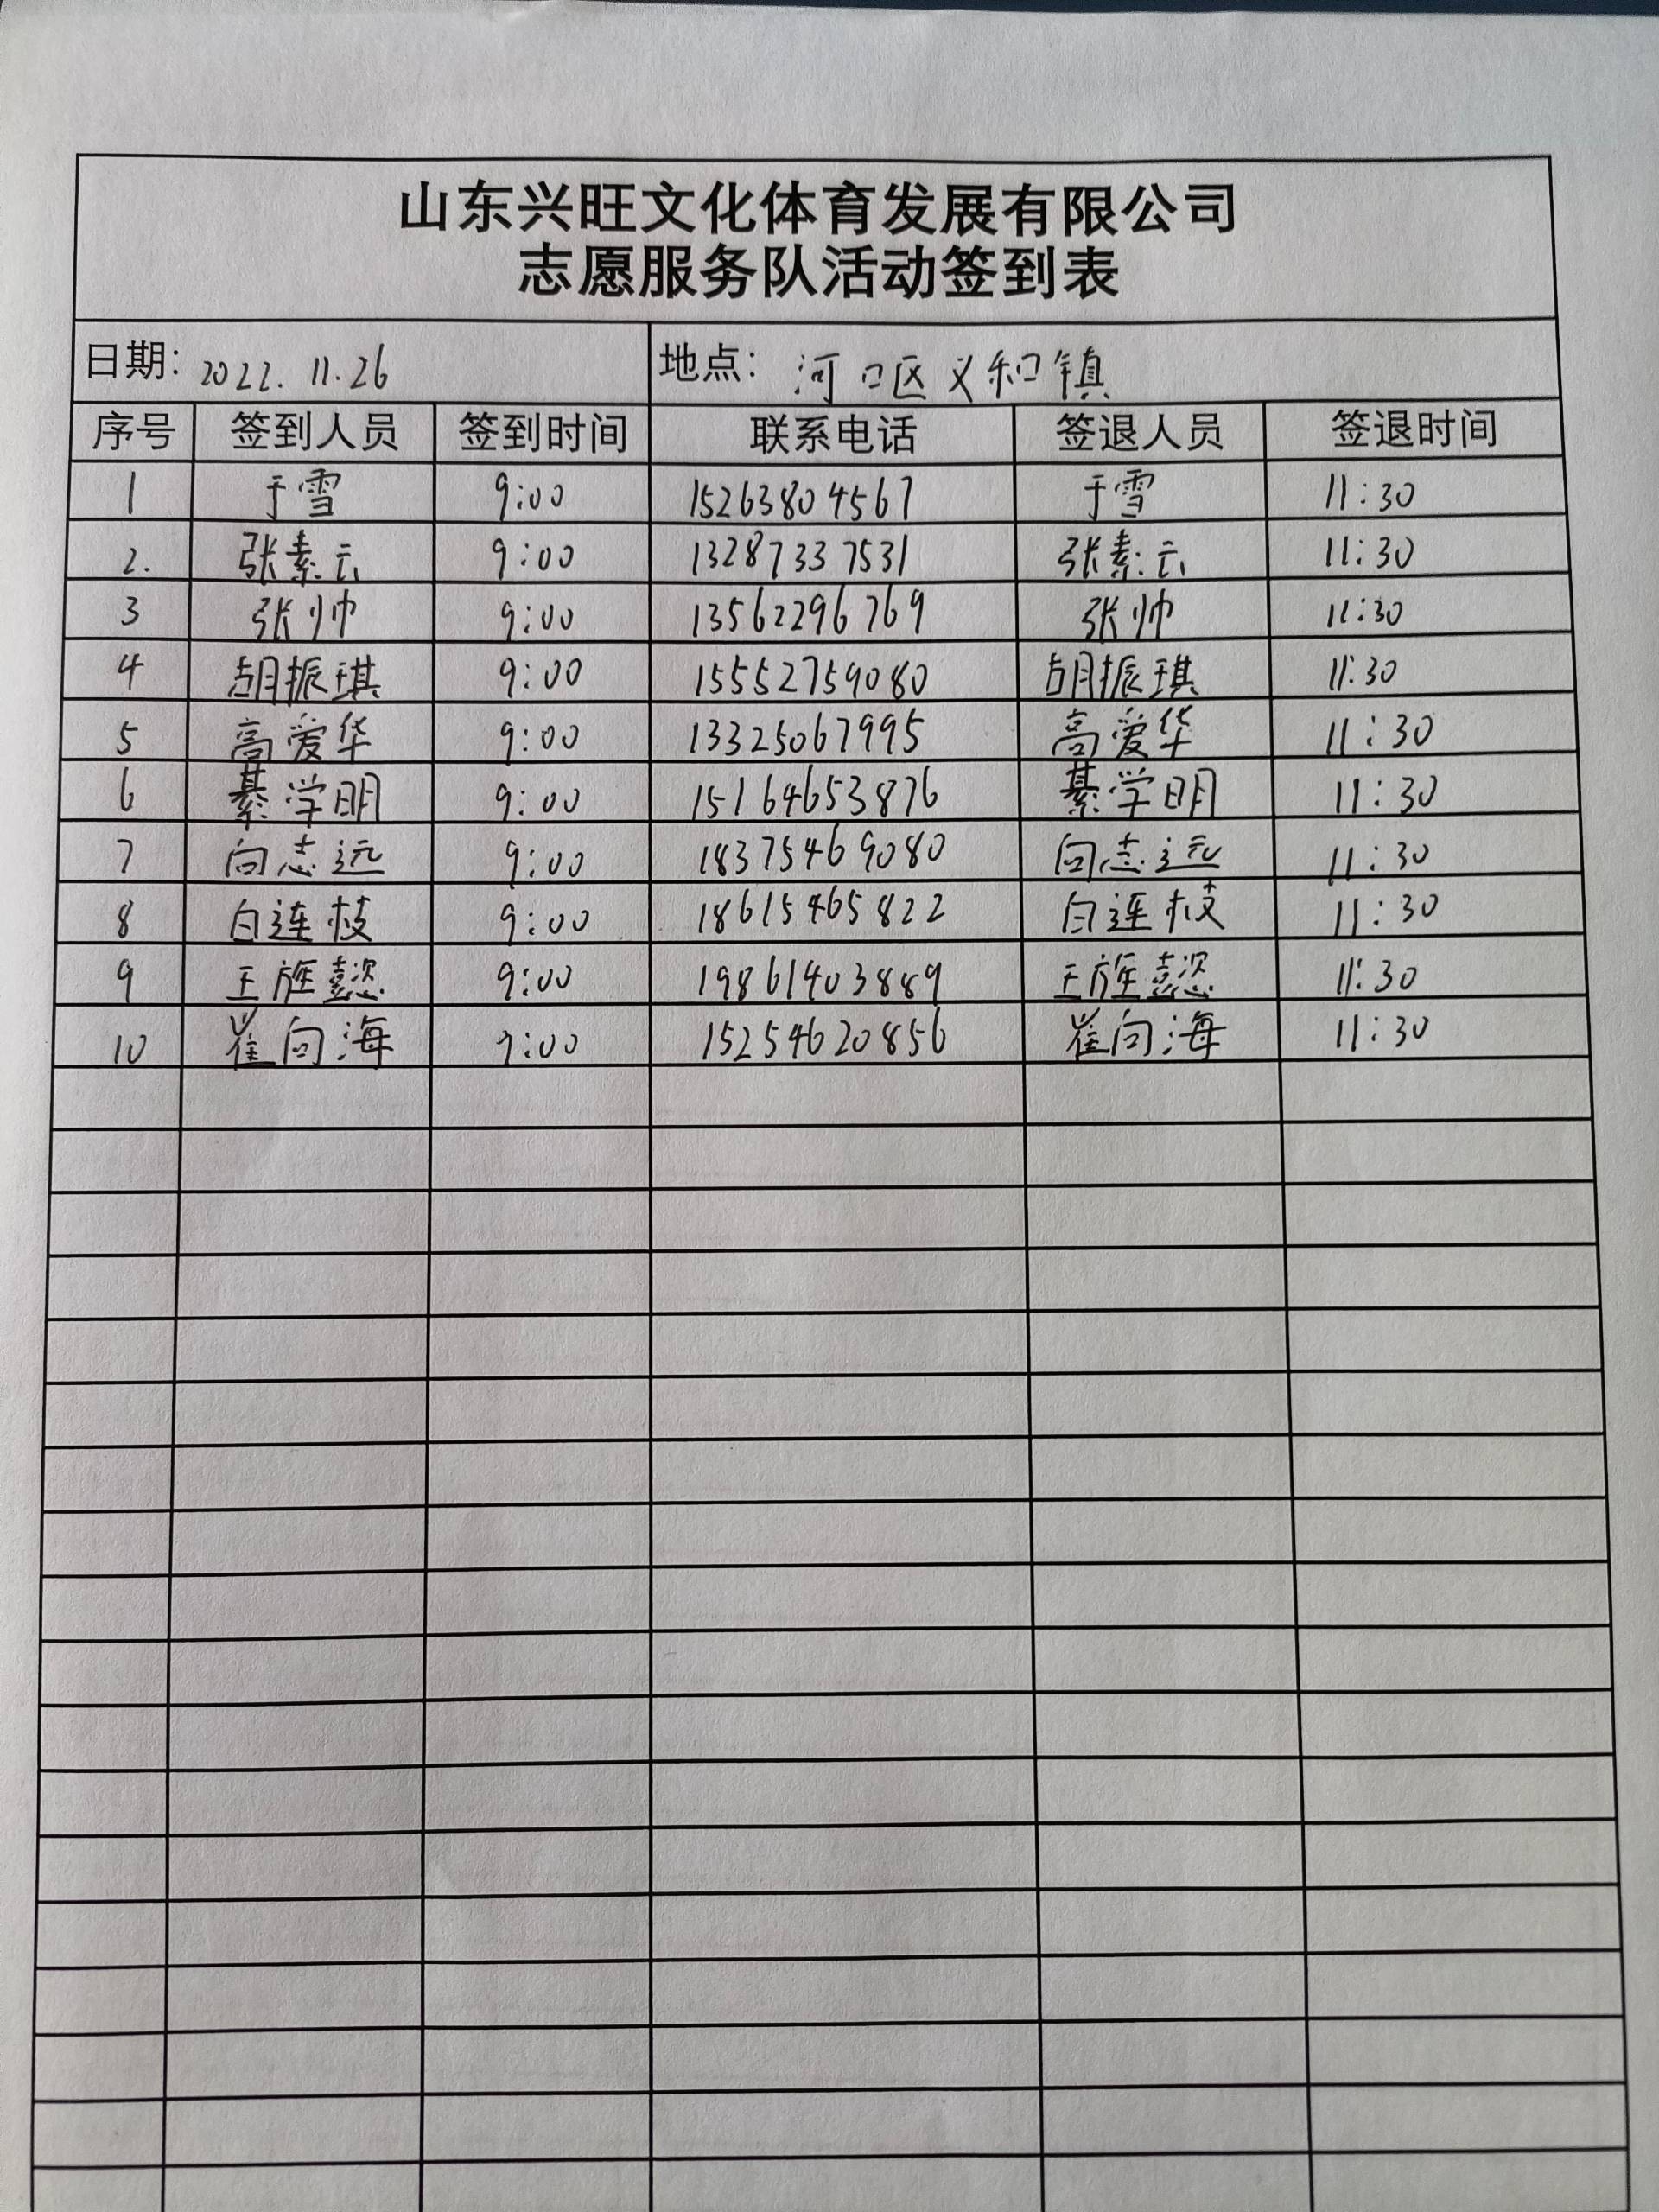 山东兴旺文化体育发展有限公司
志愿服务队活动签到表
日期: 2022.11.26 地点: 河口区义和镇
序号 签到人员 签到时间 联系电话 签退人员 签退时间
1 于雪 9:00 15263804567 于雪 11:30
2. 张素云 9:00 13287337531 张素云 11:30
3 张帅 9:00 13562296769 张帅 11:30
4 胡振琪 9:00 15552759080 胡振琪 11:30
5 高爱华 9:00 13325067995 高爱华 11:30
6 綦学明 9:00 15164653876 綦学明 11:30
7 向志远 9:00 18375469080 向志远 11:30
8 白连枝 9:00 18615465822 白连枝 11:30
9 王旌懿 9:00 19861403889 王旌懿 11:30
10 崔向海 9:00 15254620856 崔向海 11:30